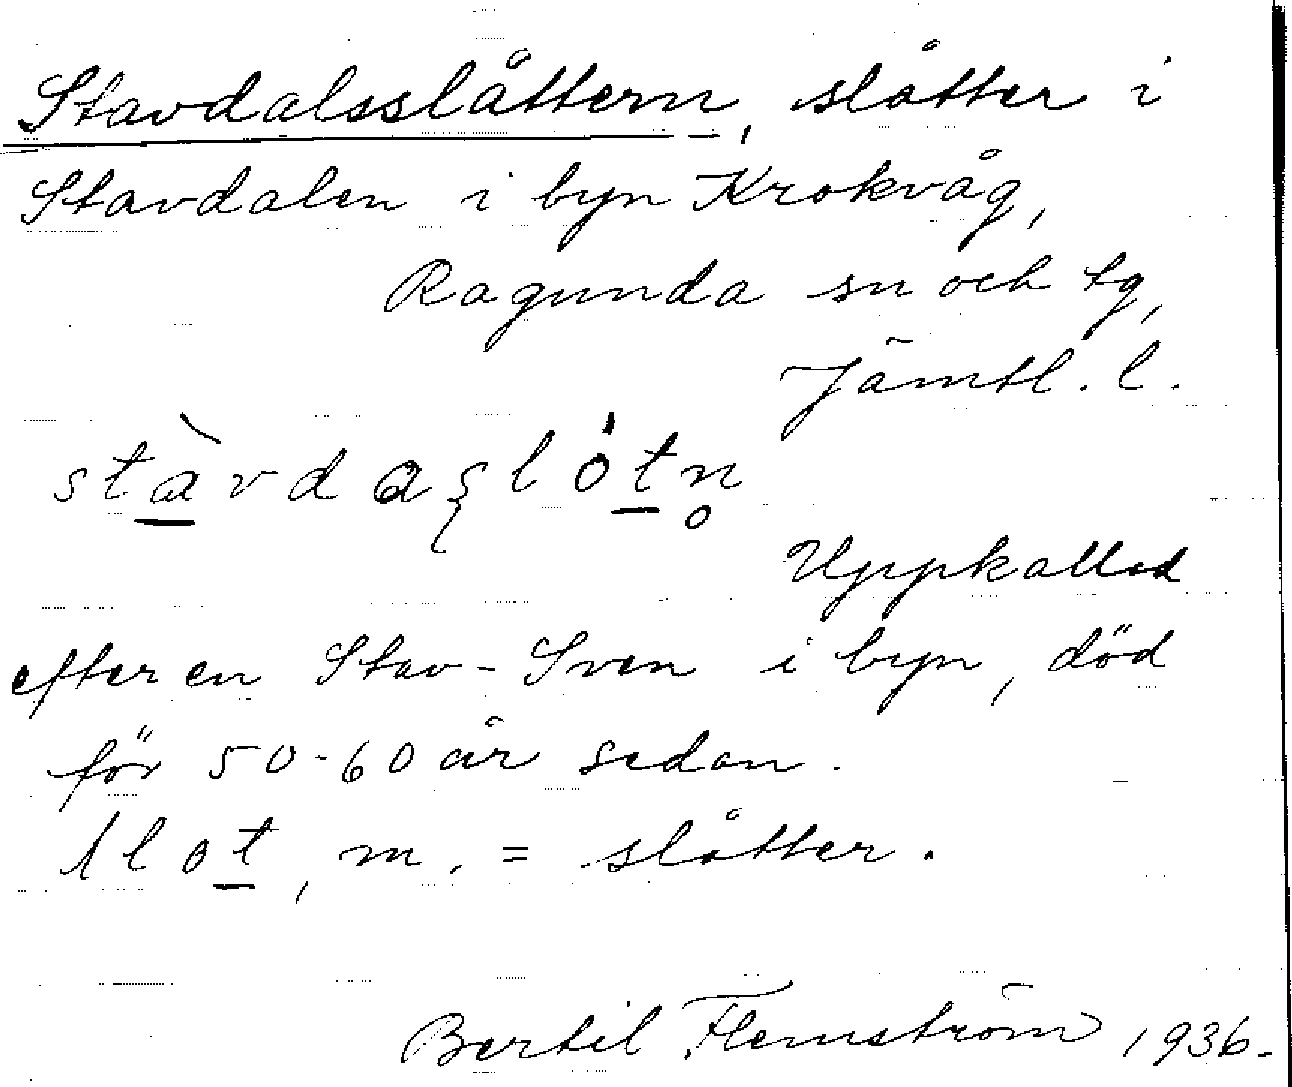 Stavdalsslåttern, slåtter i
Stavdalen i byn Krokvåg,
Ragunda sn och tg,
Jämtl. l.
stàvdaʂlótn̥
Uppkallad
efter en Stav-Sven i byn, död
för 50-60 år sedan.
slot, m. = slåtter.
Bertil Flemström 1936.